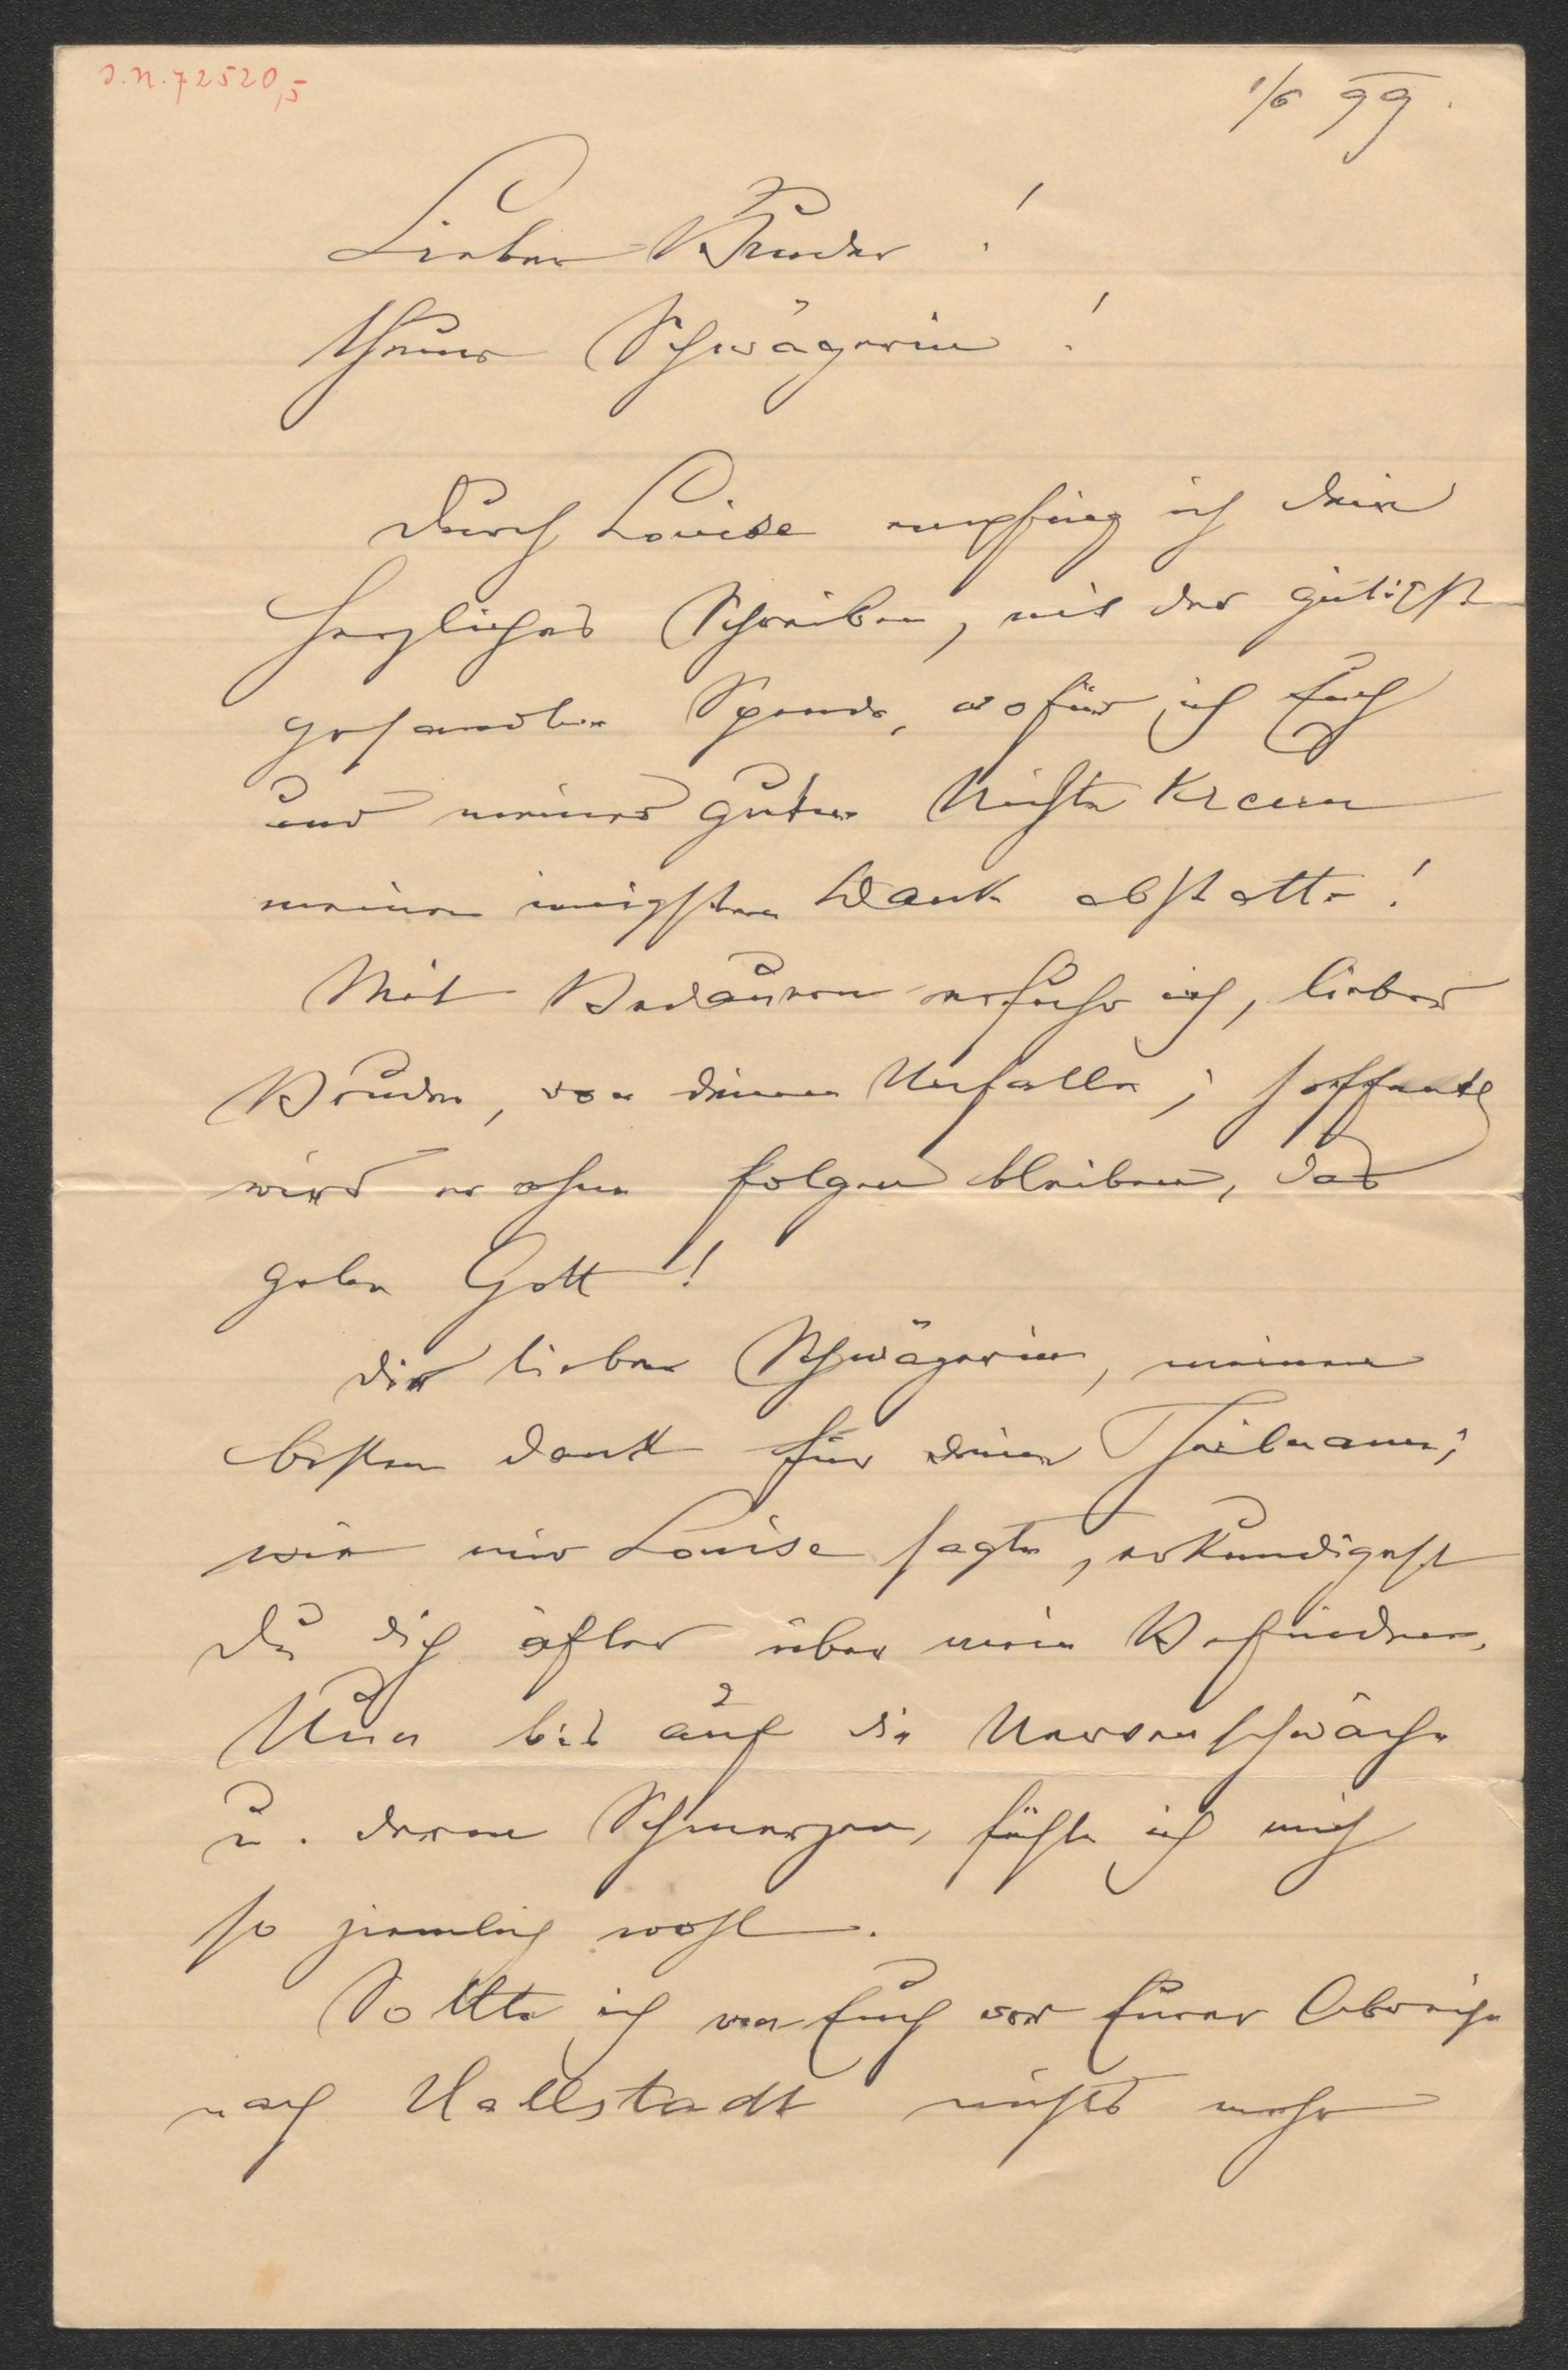 J.N. 72520,5
1/6 99.
Lieber Bruder!
Theure Schwägerin!
Durch Louise empfing ich dein
herzliches Schreiben, mit der gütigst
gesandten Spende, wofür ich Euch
und meiner guten Nichte
meinen innigsten Dank abstatte!
Mit Bedauern erfuhr ich, lieber
Bruder, von deinem Unfalle; hoffentl
wird er ohne Folgen bleiben, das
gebe Gott!
Dir liebe Schwägerin, meinen
besten Dank für deine Theilname;
wie mir Louise sagte, erkundigest
Du dich öfter über mein Befinden,
Nun bis auf die Nervenschwäche
u. deren Schmerzen, fühle ich mich
so ziemlich wohl.
Sollte ich von Euch vor Eurer Abreise
nach Hallstadt nichts mehr